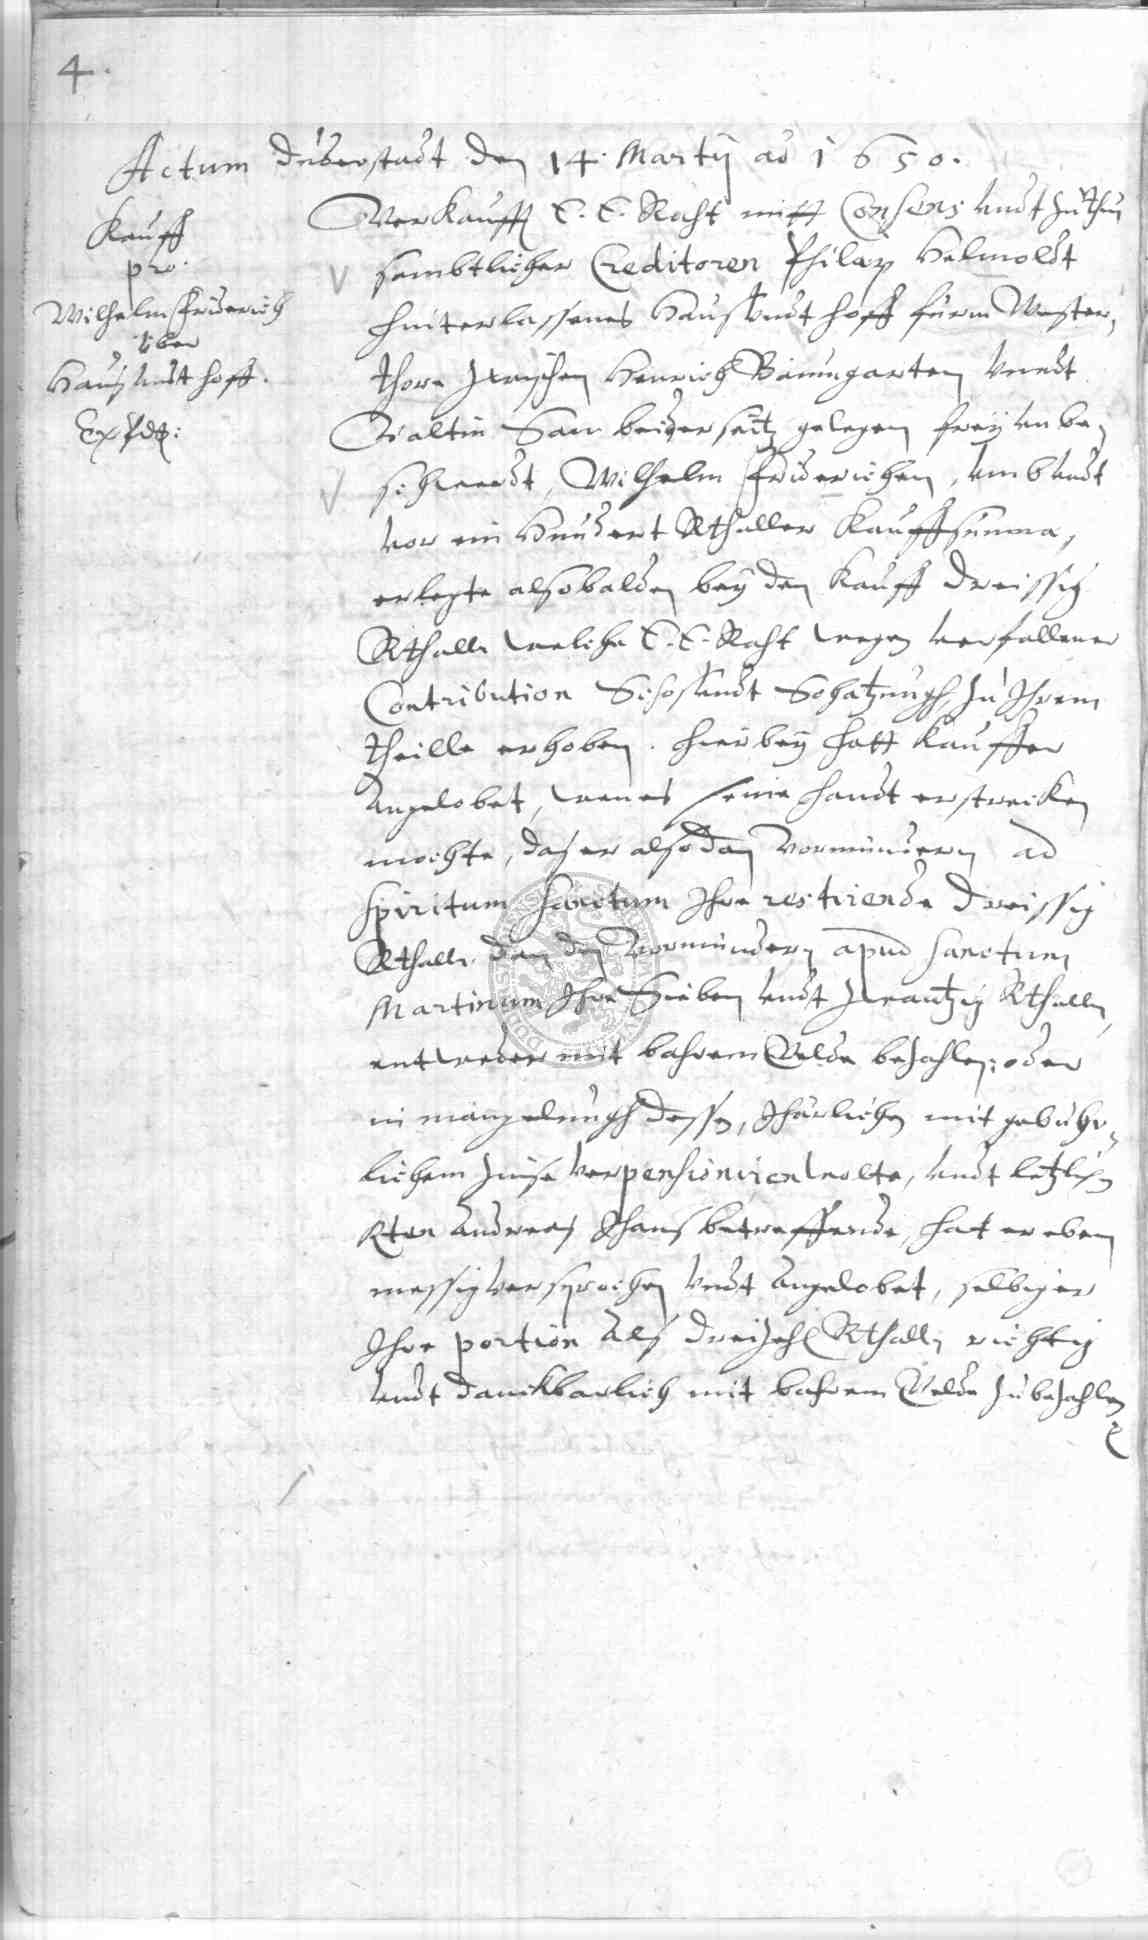 4.
Actum Duderstadt den 14. Martij ao 1650.
Kauff
pro.
Wilhelm Friderich
über
Hauß undt hoff.
Verkaufft E. E. Raht mitt Consens undt zuthun
sembtlicher Creditoren Philip Helmoldt
hinterlassenes Hauß undt hoff fürm Wester-
thore zwischen Henrich Baumgarten unndt
Valtin beiderseitz gelegen frey unbe-
schwerdt, Wilhelm Friderichen, umb undt
vor ein Hundert Rthaller Kauffsumma,
erlegte alsobalden bey den Kauff dreissig
Rthall. welche E. E. Raht wegen verfallener
Contribution Schoß undt Schatzungh, zu Ihrem
theille erhoben. hierbey hatt Kauffer
angelobet, wen es seine handt erstrecken
mochte, daß er alsodan Vormündern ad
Spiritum Sanctum Ihre restirende dreissig
Rthall. dan den Vormündern apud Sanctum
Martinum Ihre Sieben undt zwantzig Rthall.
entweder mit bahrem Gelde bezahlen: oder
in mangelungh dessen, Jhärlichen mit gebuhr-
lichem zinse verpensioniren wolte, undt letzlich
Andreas Jhans betreffende, hat er eben
messig versprochen undt angelobet, selbiger
Ihre portion alß dreizehn Rthall. richtig
undt danckbarlich mit bahrem Gelde zu bezahlen